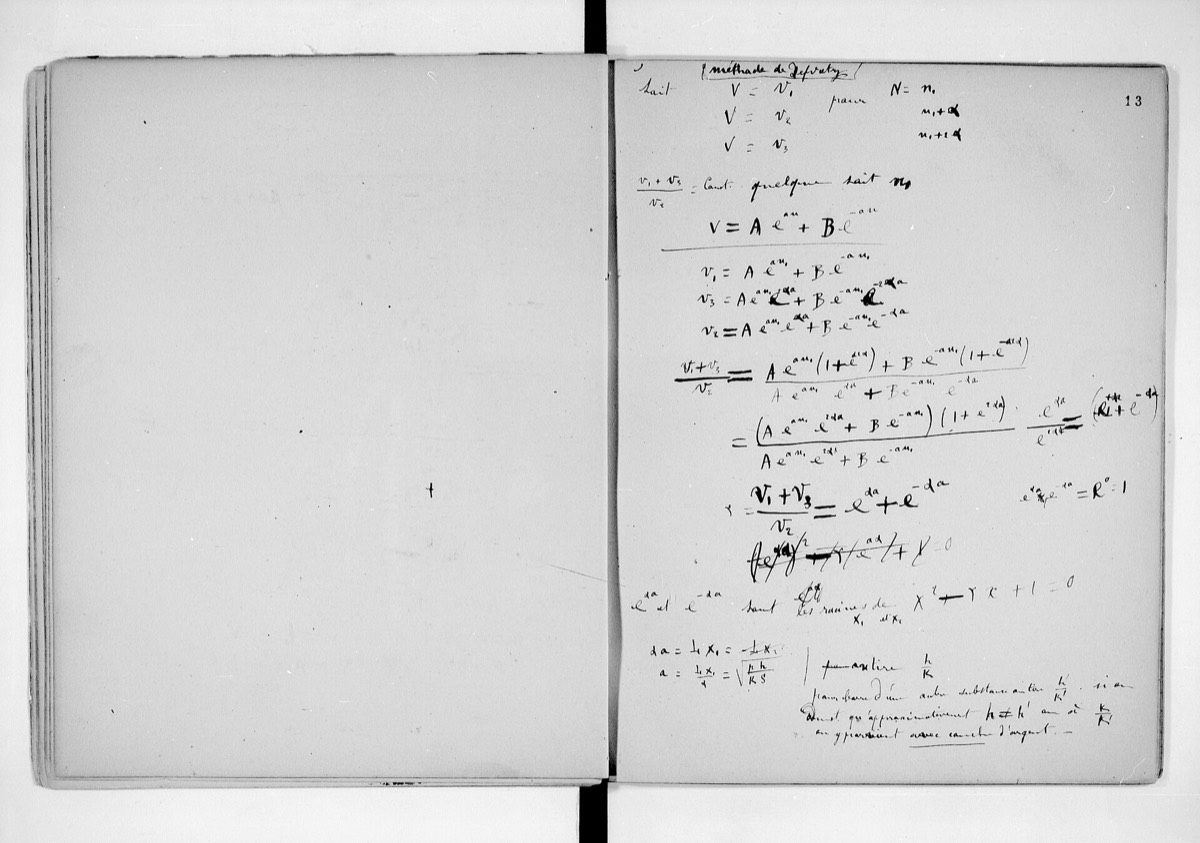 (méthode de Despretz)
13
soit V = v₁ pour N = n₁
V = v₂ n₁+α
V = v₃ n₁+2α
(v₁ + v₃)/v₂ = Const. quelque soit n₁
V = A e^{an} + B e^{-an}
v₁ = A e^{an₁} + B e^{-an₁}
v₃ = A e^{an₁} e^{2αa} + B e^{-an₁} e^{-2αa}
v₂ = A e^{an₁} e^{αa} + B e^{-an₁} e^{-αa}
(v₁+v₃)/v₂ = (A e^{an₁} (1+e^{2αa}) + B e^{-an₁} (1+e^{-2αa}))/(A e^{an₁} e^{αa} + B e^{-an₁} e^{-αa})
= ((A e^{an₁} e^{2αa} + B e^{-an₁}) (1+e^{2αa}))/(A e^{an₁} e^{2αa} + B e^{-an₁}) · e^{αa}/e^{2αa} = (e^{+αa} + e^{-αa})
γ = (v₁+v₃)/v₂ = e^{αa} + e^{-αa} e^{αa} × e^{-αa} = e⁰ = 1
e^{αa} et e^{-αa} sont les racines de x² - γx + 1 = 0
x₁ et x₂
αa = L x₁ = -L x₂
a = L x₁/α = √(ph/ks) on tire h/k
pour barre d'une autre substance on tire h'/k' . si on
admet qu'approximativement h = h' on a k/k'
on y parvient avec couche d'argent. —